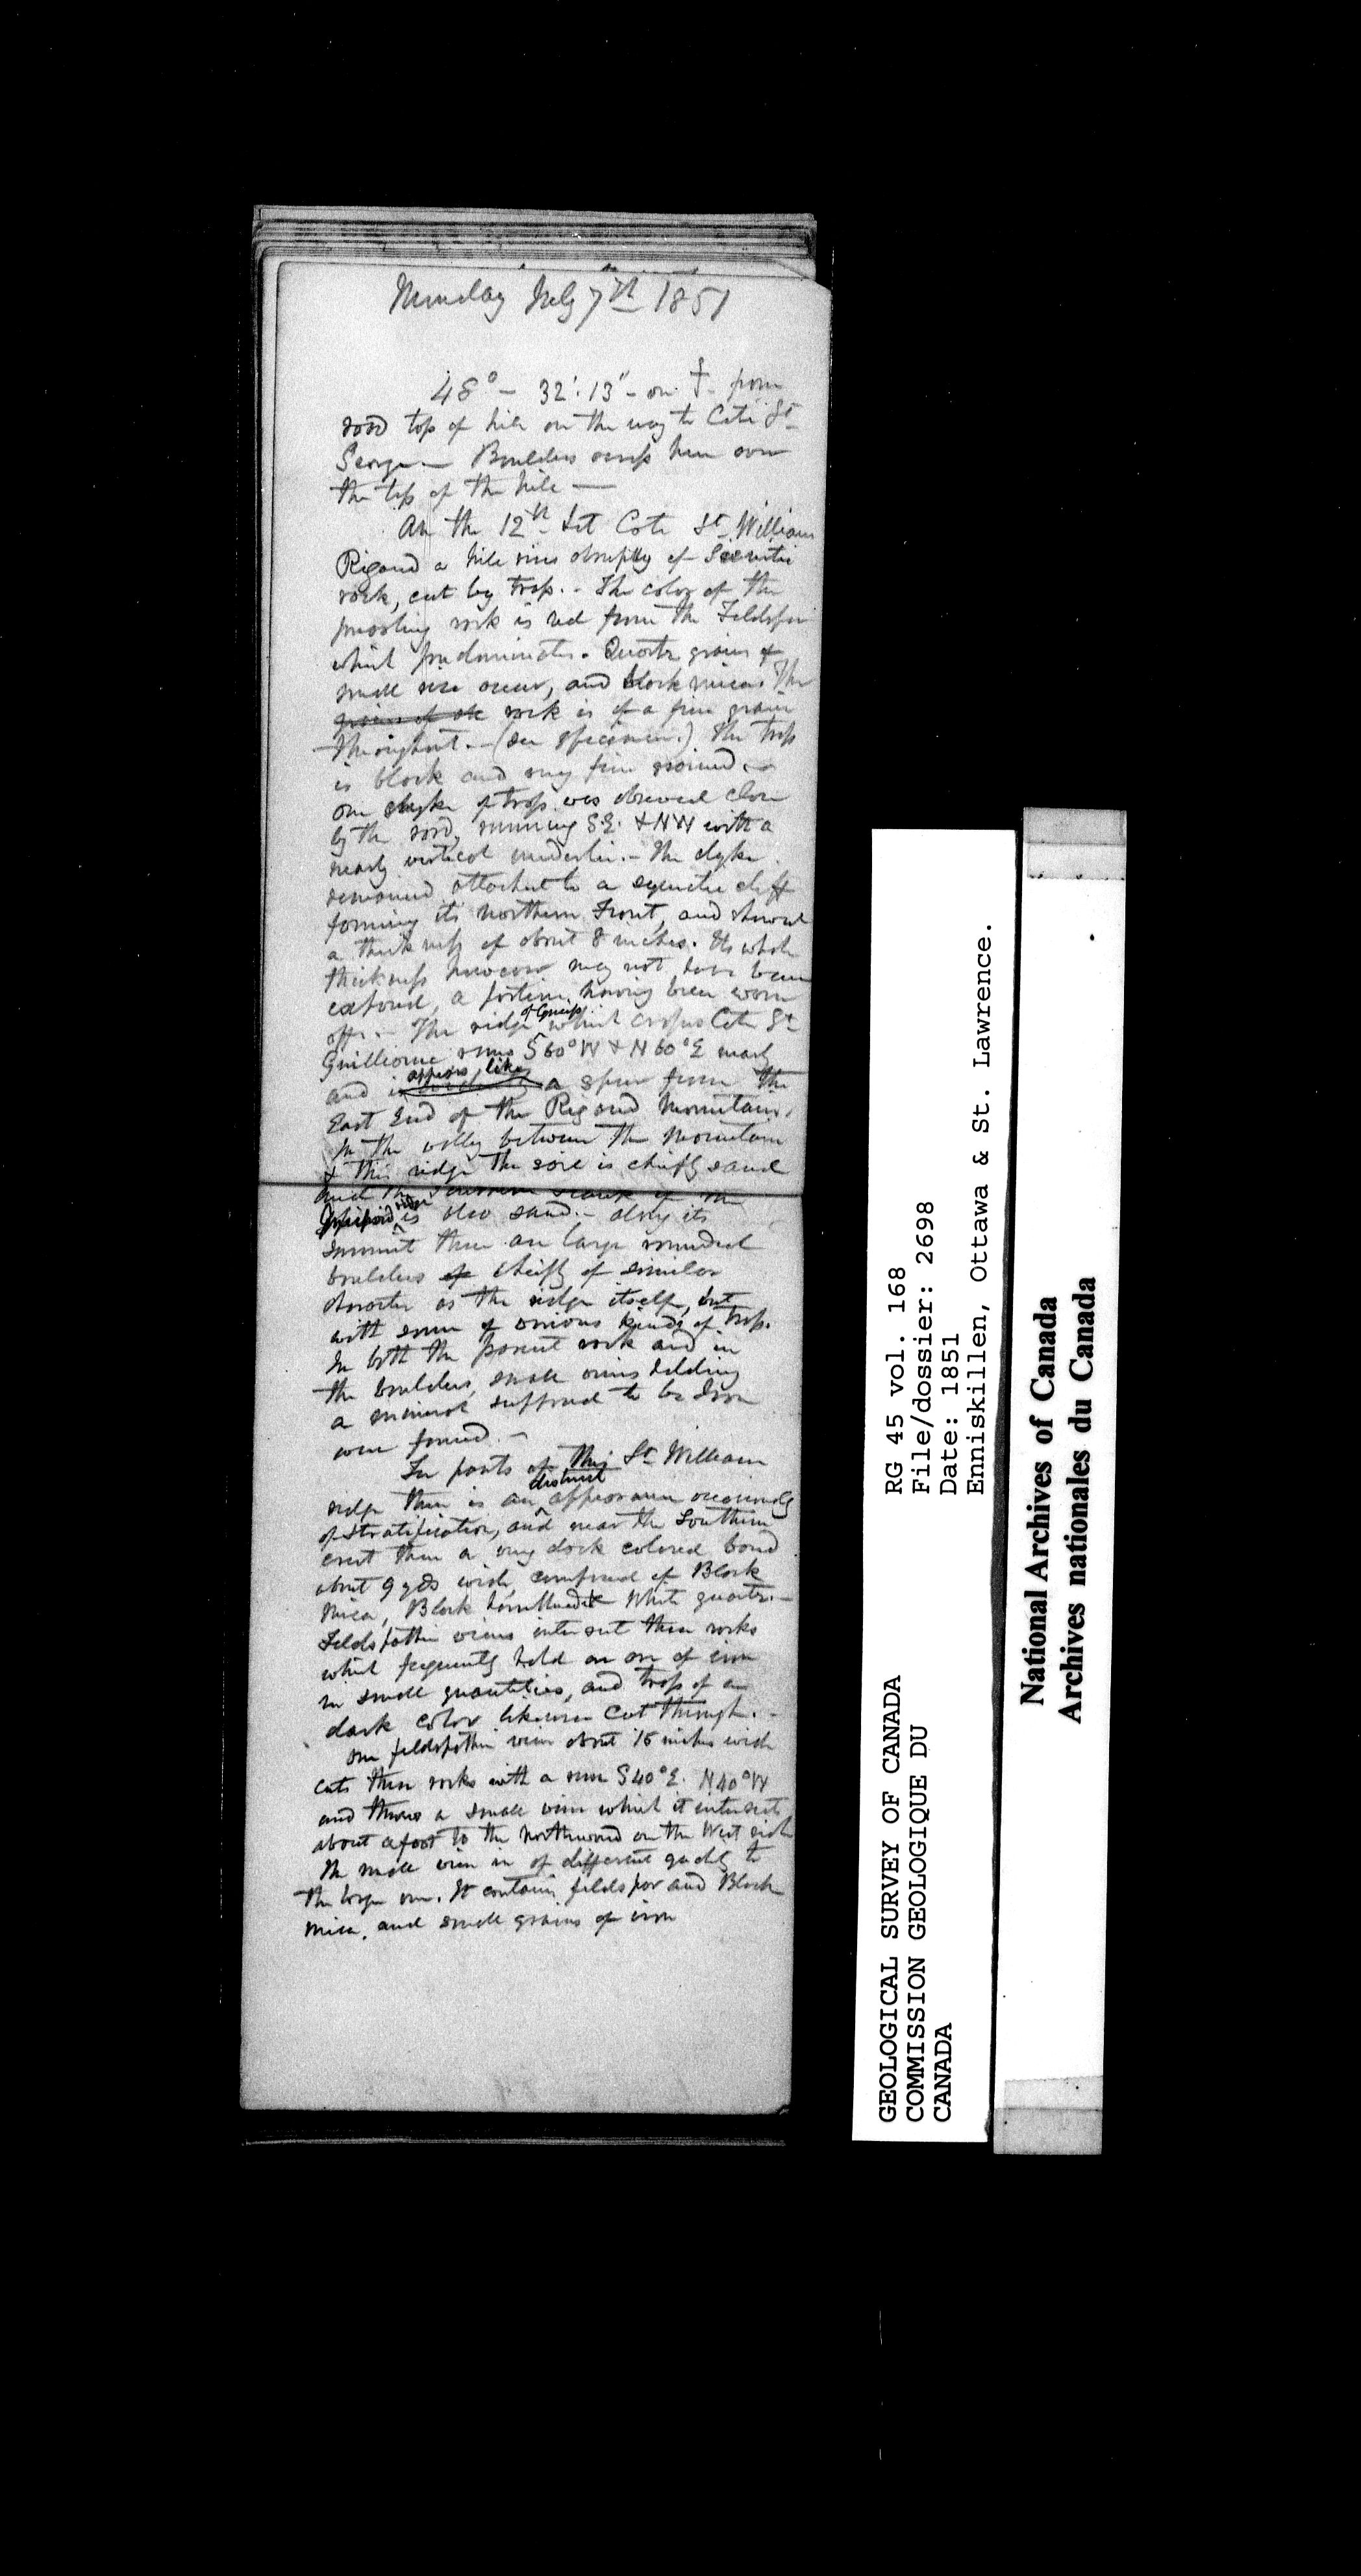 Monday July 7th 1851
48° - 32'. 13" - on † from
road top of hill on the way to Cote St
George — Boulders across here over
the top of the hill —
At the 12th Lot Cote St William
Rigaud a hill rises abruptly of Syenitic
rock, cut by trap. - The color of the
prevailing rock is red from the Feldspar
which predominates. Quartz grains of
small size occur, and black mica. The
grains of the rock is of a fine grain
throughout. — (see specimen.) The trap
is black and very fine grained —
One dyke of trap was observed close
by the road, running S.E. & NW with a
nearly vertical underlie. - The dyke
remained attached to a syenitic cliff
forming its northern Front, and showed
a thickness of about 8 inches. Its whole
thickness however may not have been
exposed, a portion having been worn
off. - The ridge of Gneiss which crosses Cote St
Guilliame runs S60°W & N60°E nearly
and is appears like a spur from the
East End of the Rigaud Mountain.
In the valley between the Mountain
& this ridge the soil is chiefly sand
and the southern flank of the
ridge is also sand. - along its
summit there are large rounded
boulders of chiefly of similar
character as the ridge itself, but
with some of various kinds of trap.
In both the parent rock and in
the boulders, small veins holding
a mineral supposed to be Iron
were found. -
In parts of this St William
ridge there is an distinct appearance occasionally
of stratification, and near the Southern
crest there a very dark colored band
about 9 yds wide, composed of Black
Mica, Black hornblende & White quartz. -
Feldspathic veins intersect these rocks
which frequently hold an ore of iron
in small quantities, and trap of a
dark color likewise cut through. -
One feldspathic vein about 15 inches wide
cuts these rocks with a run S40°E. N40°W
and throws a small vein which it intersects
about a foot to the northward on the West side
The small vein is of different quality to
the large one. It contains feldspar and Black
Mica, and small grains of iron
GEOLOGICAL SURVEY OF CANADA
COMMISSION GEOLOGIQUE DU
CANADA
RG 45 vol. 168
File/dossier: 2698
Date: 1851
Enniskillen, Ottawa & St. Lawrence.
National Archives of Canada
Archives nationales du Canada